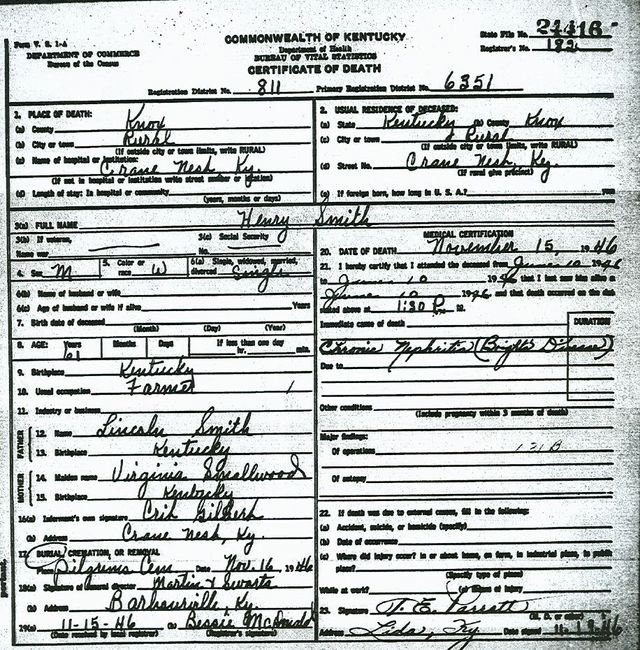 Form V. S. 1-A
DEPARTMENT OF COMMERCE
Bureau of the Census
COMMONWEALTH OF KENTUCKY
Department of Health
BUREAU OF VITAL STATISTICS
CERTIFICATE OF DEATH
State File No. 24416
Registrar's No. 182
Registration District No. 811 Primary Registration District No. 6351
1. PLACE OF DEATH:
(a) County Knox
(b) City or town Rural
(If outside city or town limits, write RURAL)
(c) Name of hospital or institution:
Crane Nest, Ky.
(If not in hospital or institution write street number or location)
(d) Length of stay: In hospital or community
(years, months or days)
2. USUAL RESIDENCE OF DECEASED:
(a) State Kentucky (b) County Knox
(c) City or town Rural
(If outside city or town limits, write RURAL)
(d) Street No. Crane Nest, Ky.
(If rural give precinct)
(e) If foreign born, how long in U. S. A.? years
3(a) FULL NAME Henry Smith
3(b) If veteran,
Name war
3(c) Social Security
No.
4. Sex M
5. Color or
race W
6(a) Single, widowed, married,
divorced Single
6(b) Name of husband or wife
6(c) Age of husband or wife if alive Years
7. Birth date of deceased
(Month) (Day) (Year)
8. AGE: Years Months Days If less than one day
61 hr. min.
9. Birthplace Kentucky
10. Usual occupation Farmer
11. Industry or business
FATHER
12. Name Lincoln Smith
13. Birthplace Kentucky
MOTHER
14. Maiden name Virginia Smallwood
15. Birthplace Kentucky
16(a) Informant's own signature
(b) Address Crane Nest, Ky.
17. BURIAL, CREMATION, OR REMOVAL
Place Pilgrims Cem Date Nov. 16, 1946
18(a) Signature of funeral director Martin &
(b) Address Barbourville, Ky.
19(a) 11-15-46 (b) Bessie McDonald
(Date received by local registrar) (Registrar's signature)
MEDICAL CERTIFICATION
20. DATE OF DEATH November 15, 1946
21. I hereby certify that I attended the deceased from June 10 1946
to June 10 1946 that I last saw him alive on
June 10 1946 and that death occurred on the date
stated above at 1:30 P. M.
Immediate cause of death
DURATION
Chronic Nephritis (Brights Disease)
Due to
Other conditions
(Include pregnancy within 3 months of death)
Major findings:
Of operations 131B
Of autopsy
22. If death was due to external causes, fill in the following:
(a) Accident, suicide, or homicide (specify)
(b) Date of occurrence
(c) Where did injury occur? in or about home, on farm, in industrial place, in public
place?
(Specify type of place)
While at work? (e) Means of injury
23. Signature T. E.
(M. D. or other)
Address Lida, Ky Date signed